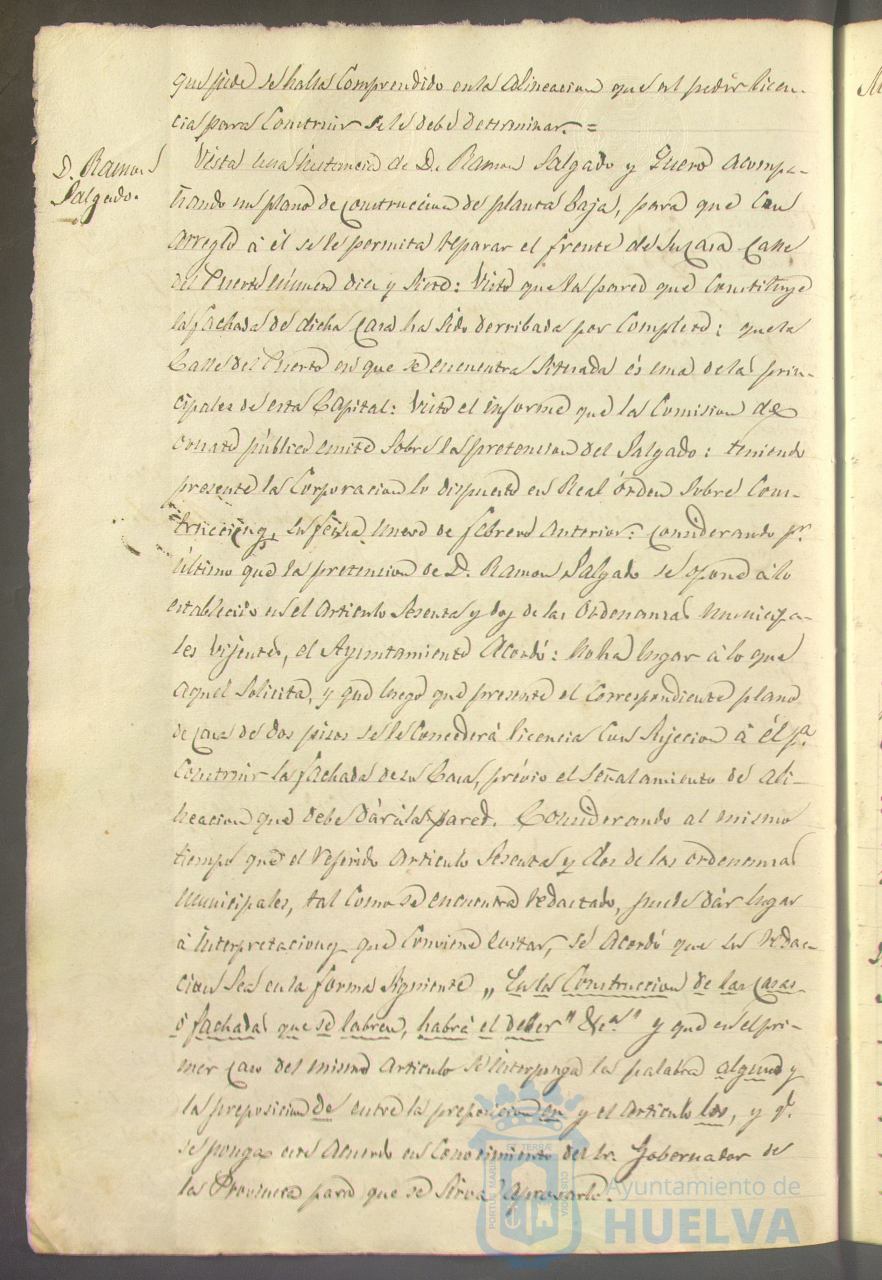 que pide se halla Comprendido en la alineacion que al pedir licen-
cia para Construir se le debe determinar. =
D. Ramon
Salgado.
Vista una instancia de D. Ramon Salgado y Quero acompa-
ñando un plano de construccion de planta baja, para que con
arreglo á él se le permita reparar el frente de su casa calle
del Puerto número diez y siete: Visto que la pared que Constituye
la fachada de dicha casa ha sido derribada por completo: que la
Calle del Puerto en que se encuentra situada és una de las prin-
cipales de esta Capital: Visto el informe que la Comision de
ornato público emite sobre la pretencion del Salgado: teniendo
presente la Corporacion lo dispuesto en Real órden sobre Cons-
trucciones, su fecha nueve de febrero anterior: Considerando pr.
último que la pretencion de D. Ramon Salgado se opone á lo
establecido en el articulo sesenta y dos de las Ordenanzas municipa-
les vijentes, el Ayuntamiento Acordó: no ha lugar á lo que
aquel solicita, y que luego que presente el correspondiente plano
de casa de dos pisos se le concederá licencia con sujecion á él pa.
Construir la fachada de su Casa, prévio el señalamiento de ali-
neacion que debe dár á la pared. Considerando al mismo
tiempo que el referido articulo sesenta y dos de las ordenanzas
municipales, tal como se encuentra redactado, puede dár lugar
á interpretaciones que conviene evitar, sé acordó que su redac-
cion sea en la forma siguiente „ En la Construccion de las casas
ó fachadas que se labren, habrá el deber" &c.a" y que en el pri-
mer caso del mismo articulo se interponga la palabra alguno y
la preposicion de entre la preposicion en y el articulo los, y q.
se ponga este acuerdo en conocimiento del Sr. Gobernador de
la Provincia para que se sirva aprobarlo.
PORTUS MARIS
ET TERRAE
CUSTODIA
Ayuntamiento de
HUELVA